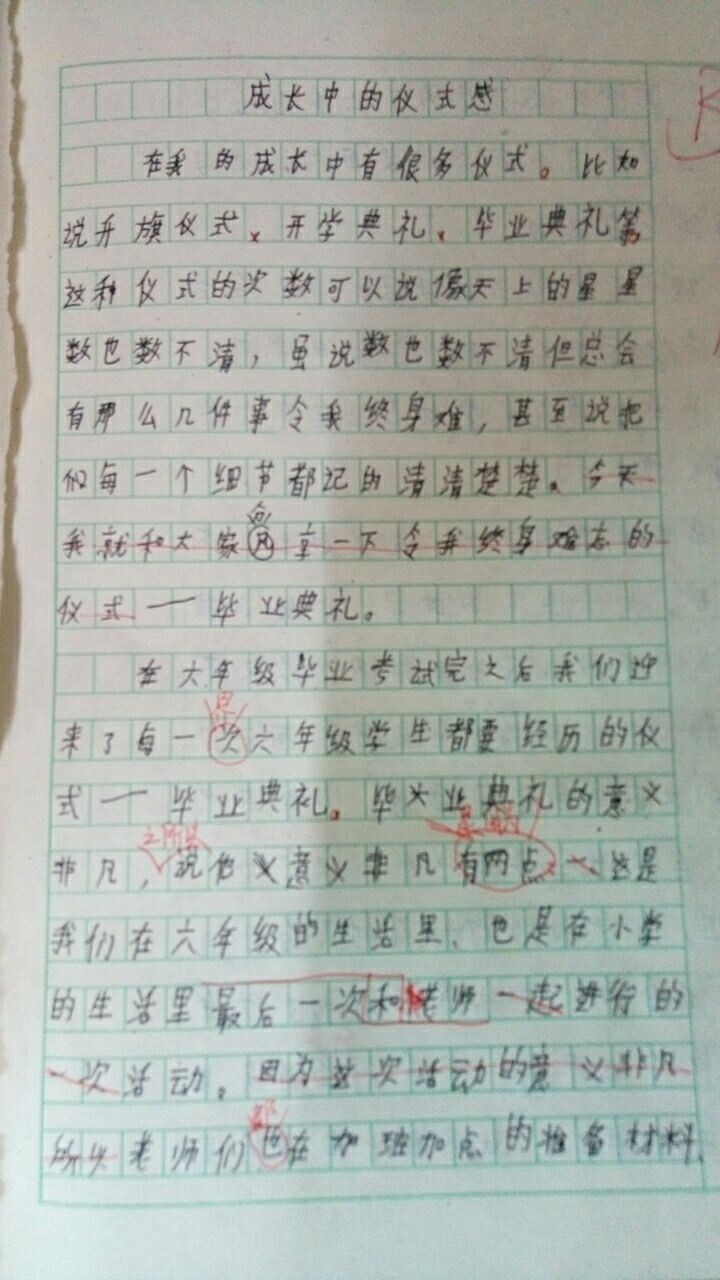 成长中的仪式感
在我的成长中有很多仪式。比如
说升旗仪式、开学典礼、毕业典礼等
这种仪式的次数可以说像天上的星星
数也数不清，虽说数也数不清但总会
有那么几件事令我终身难，甚至说把
们每一个细节都记的清清楚楚。今天
我就和大家享一下令我终身难忘的
仪式一毕业典礼。
在六年级毕业考试完之后我们迎
来了每一次六年级学生都要经历的仪
式一毕业典礼。毕业典礼的意义
之所以
非凡，说他意义非凡有两点一、这是
我们在六年级的生活里、也是在小学
的生活里最后一次和老师一起进行的
一次活动。因为这次活动的意义非凡
都
所以老师们也在加班加点的准备材料、